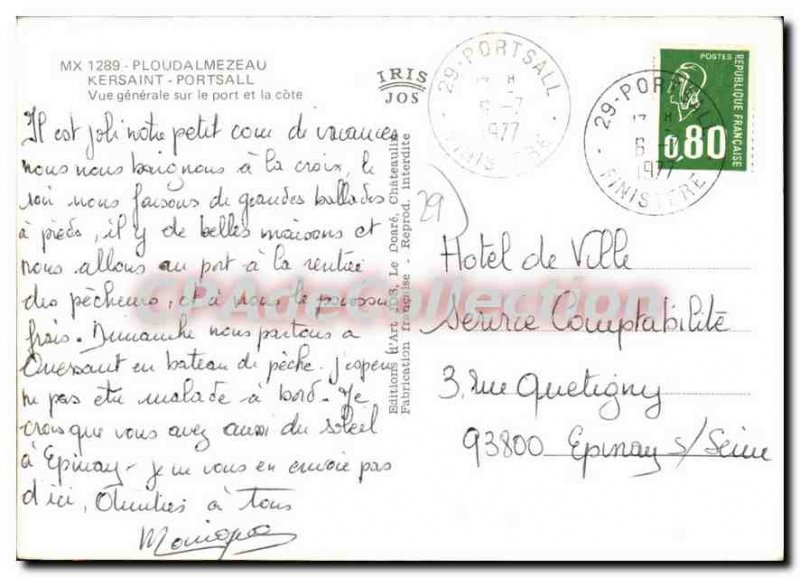 MX 1289 - PLOUDALMEZEAU
KERSAINT - PORTSALL
Vue générale sur le port et la côte
IRIS
JOS
Il est joli notre petit coin de vacances
nous nous baignons à la croix, le
soir nous faisons de grandes ballades
à pieds, il y de belles maisons et
nous allons au port à la rentrée
des pêcheurs, et à nous le poisson
frais. Dimanche nous partons à
Ouessant en bateau de pêche. j'espère
ne pas être malade à bord. Je
crois que vous avez aussi du soleil
à Epinay. je ne vous en envoie pas
d'ici, Amitiés à tous
Monique
Editions d'Art JOS, Le Doaré, Châteaulin
Fabrication française - Reprod. interdite
29-PORTSALL
6-7
1977
FINISTERE
29-PORTSALL
17 H
6-7
1977
FINISTERE
POSTES
REPUBLIQUE FRANÇAISE
0,80
29
Hotel de Ville
Service Comptabilité
3, rue Quetigny
93800 Epinay s/Seine
CPAdeCollection